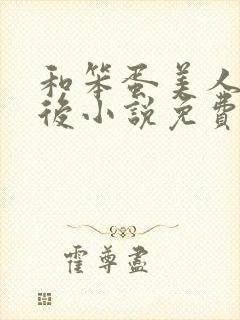 和笨蛋美人
後小說免費
霍尊盡